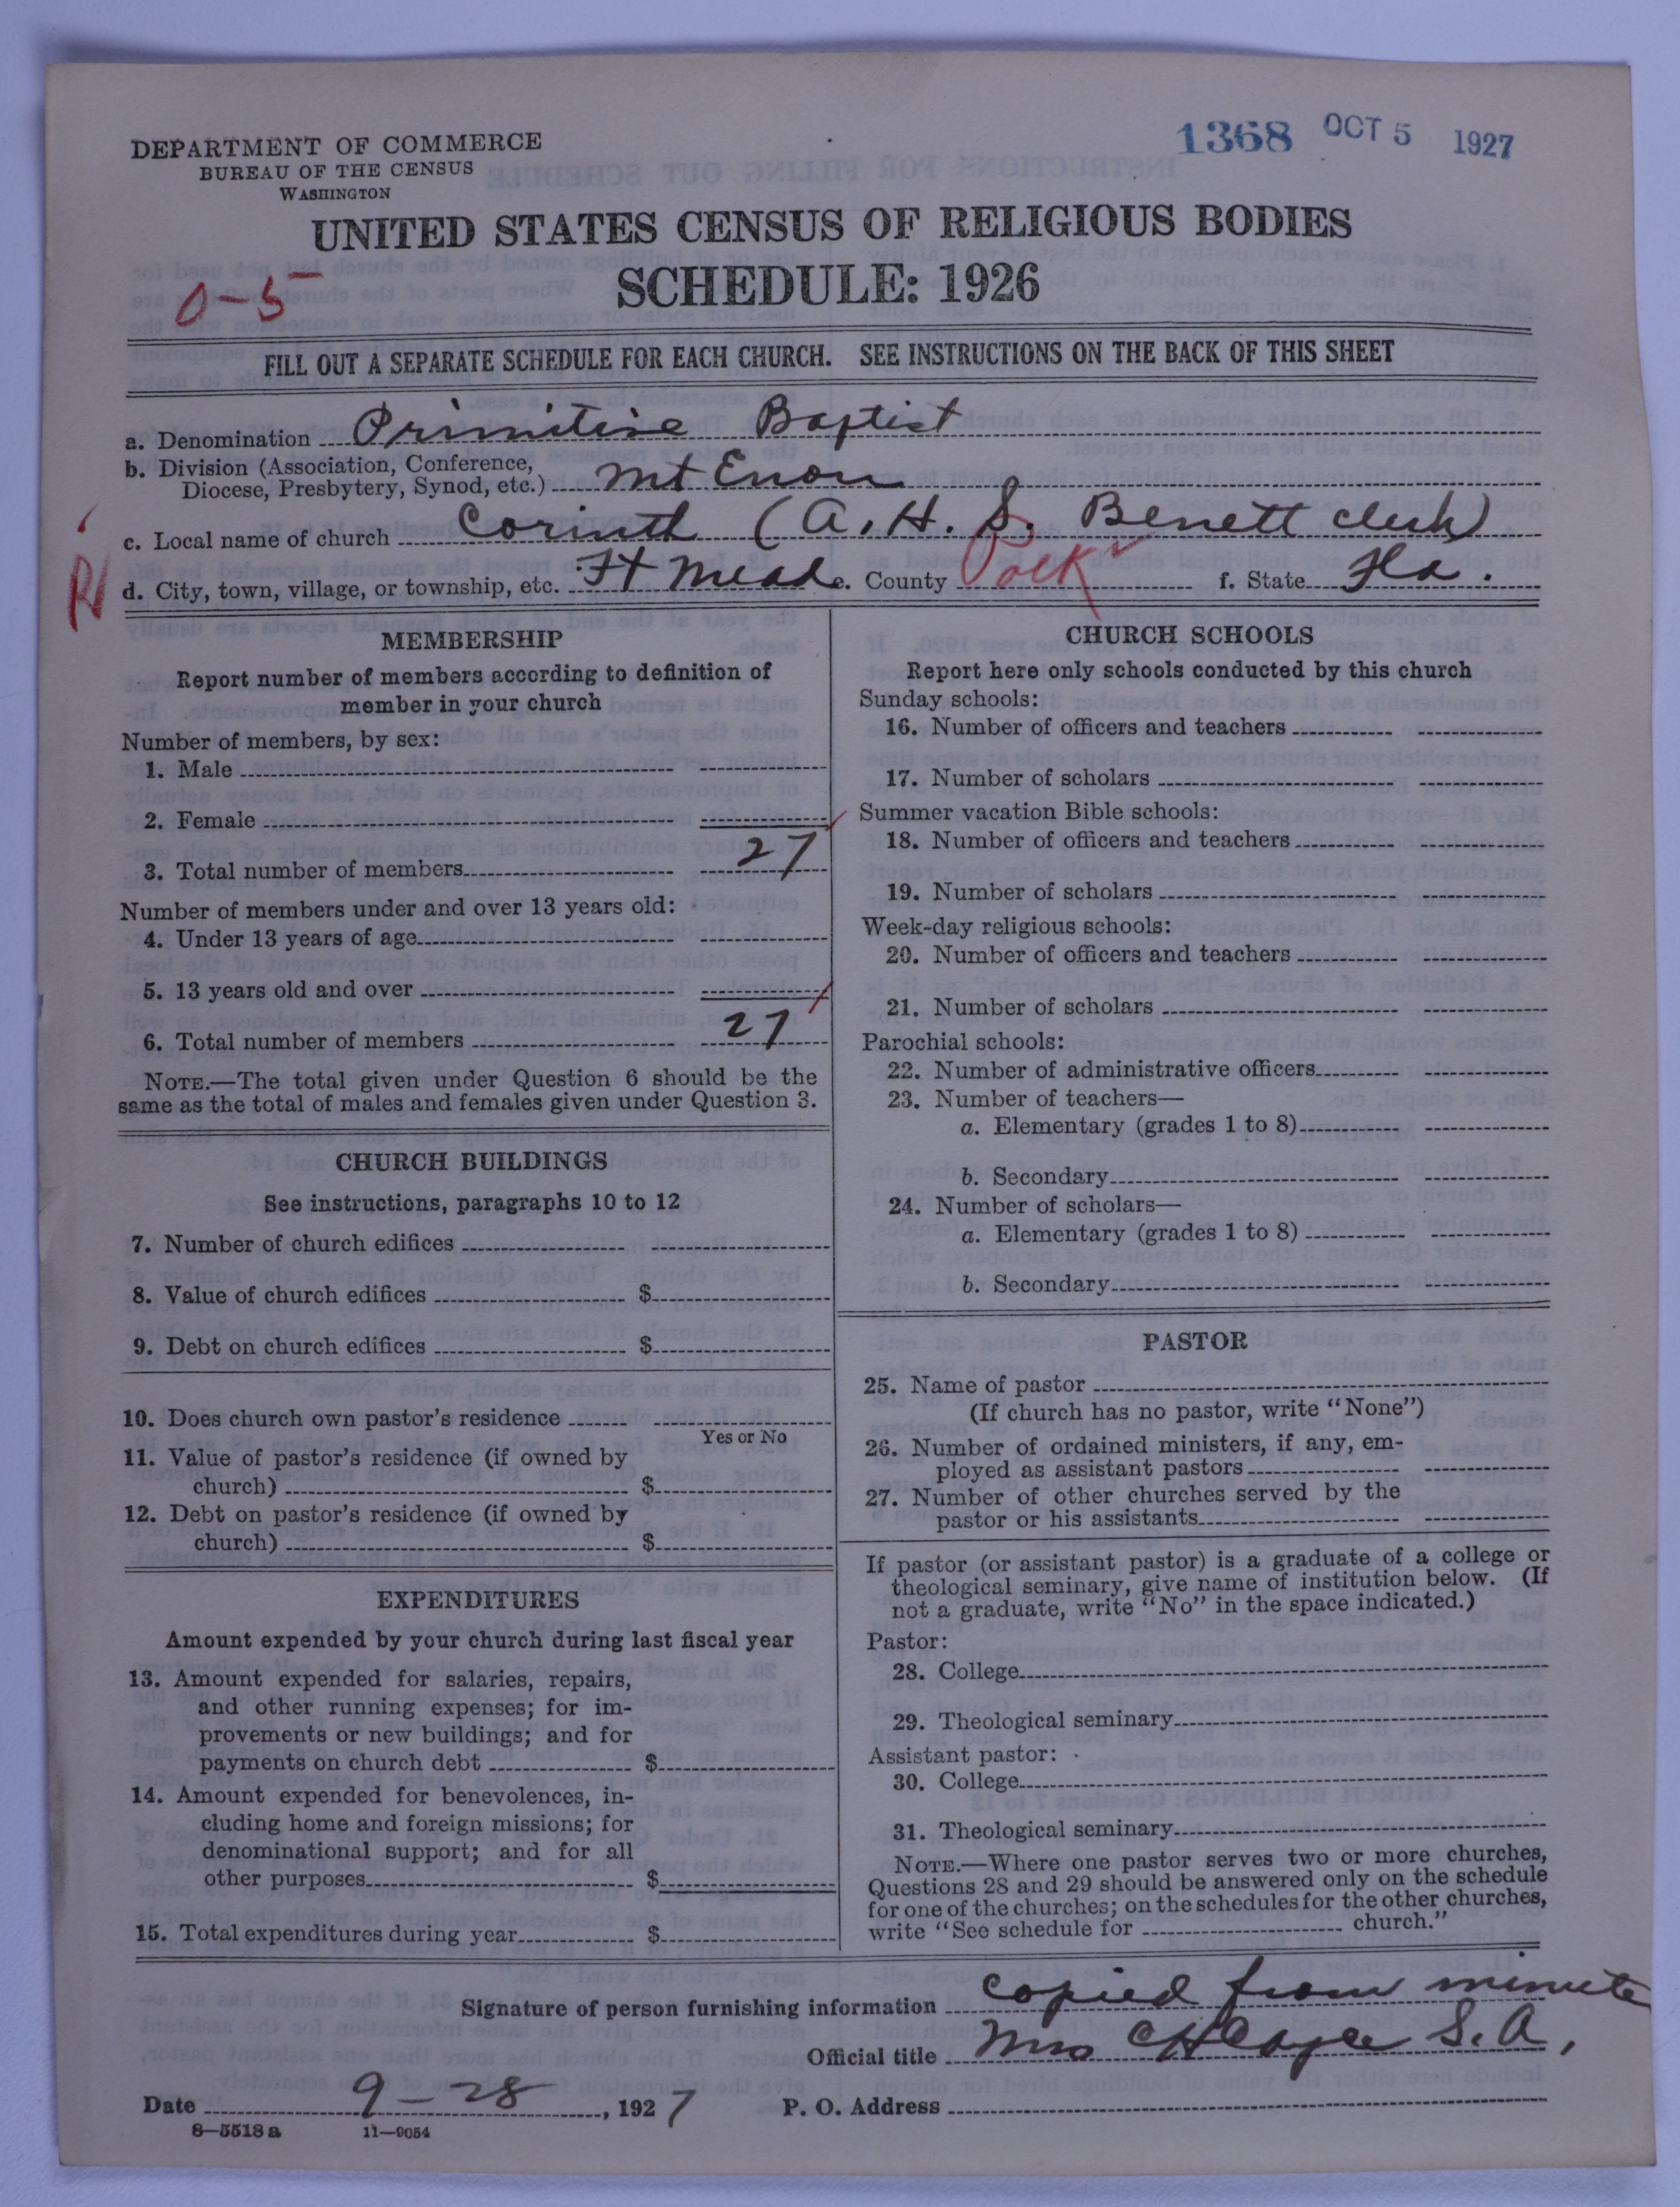 DEPARTMENT OF COMMERCE
BUREAU OF THE CENSUS
WASHINGTON
1368 OCT 5 1927
UNITED STATES CENSUS OF RELIGIOUS BODIES
SCHEDULE: 1926
0-5
FILL OUT A SEPARATE SCHEDULE FOR EACH CHURCH. SEE INSTRUCTIONS ON THE BACK OF THIS SHEET
a. Denomination Primitive Baptist
b. Division (Association, Conference,
Diocese, Presbytery, Synod, etc.) Mt Enon
c. Local name of church Corinth (A. H. S. Benett clerk)
d. City, town, village, or township, etc. Ft Meade e. County Polk f. State Fla.
MEMBERSHIP
Report number of members according to definition of
member in your church
Number of members, by sex:
1. Male
2. Female
3. Total number of members 27
Number of members under and over 13 years old:
4. Under 13 years of age
5. 13 years old and over
6. Total number of members 27
NOTE.—The total given under Question 6 should be the
same as the total of males and females given under Question 3.
CHURCH BUILDINGS
See instructions, paragraphs 10 to 12
7. Number of church edifices
8. Value of church edifices $
9. Debt on church edifices $
10. Does church own pastor's residence
Yes or No
11. Value of pastor's residence (if owned by
church) $
12. Debt on pastor's residence (if owned by
church) $
EXPENDITURES
Amount expended by your church during last fiscal year
13. Amount expended for salaries, repairs,
and other running expenses; for im-
provements or new buildings; and for
payments on church debt $
14. Amount expended for benevolences, in-
cluding home and foreign missions; for
denominational support; and for all
other purposes $
15. Total expenditures during year $
CHURCH SCHOOLS
Report here only schools conducted by this church
Sunday schools:
16. Number of officers and teachers
17. Number of scholars
Summer vacation Bible schools:
18. Number of officers and teachers
19. Number of scholars
Week-day religious schools:
20. Number of officers and teachers
21. Number of scholars
Parochial schools:
22. Number of administrative officers
23. Number of teachers—
a. Elementary (grades 1 to 8)
b. Secondary
24. Number of scholars—
a. Elementary (grades 1 to 8)
b. Secondary
PASTOR
25. Name of pastor
(If church has no pastor, write "None")
26. Number of ordained ministers, if any, em-
ployed as assistant pastors
27. Number of other churches served by the
pastor or his assistants
If pastor (or assistant pastor) is a graduate of a college or
theological seminary, give name of institution below. (If
not a graduate, write "No" in the space indicated.)
Pastor:
28. College
29. Theological seminary
Assistant pastor:
30. College
31. Theological seminary
NOTE.—Where one pastor serves two or more churches,
Questions 28 and 29 should be answered only on the schedule
for one of the churches; on the schedules for the other churches,
write "See schedule for church."
Signature of person furnishing information copied from minute
Official title Mrs C H S. A,
Date 9-28, 1927 P. O. Address
8—5518 a 11—9054